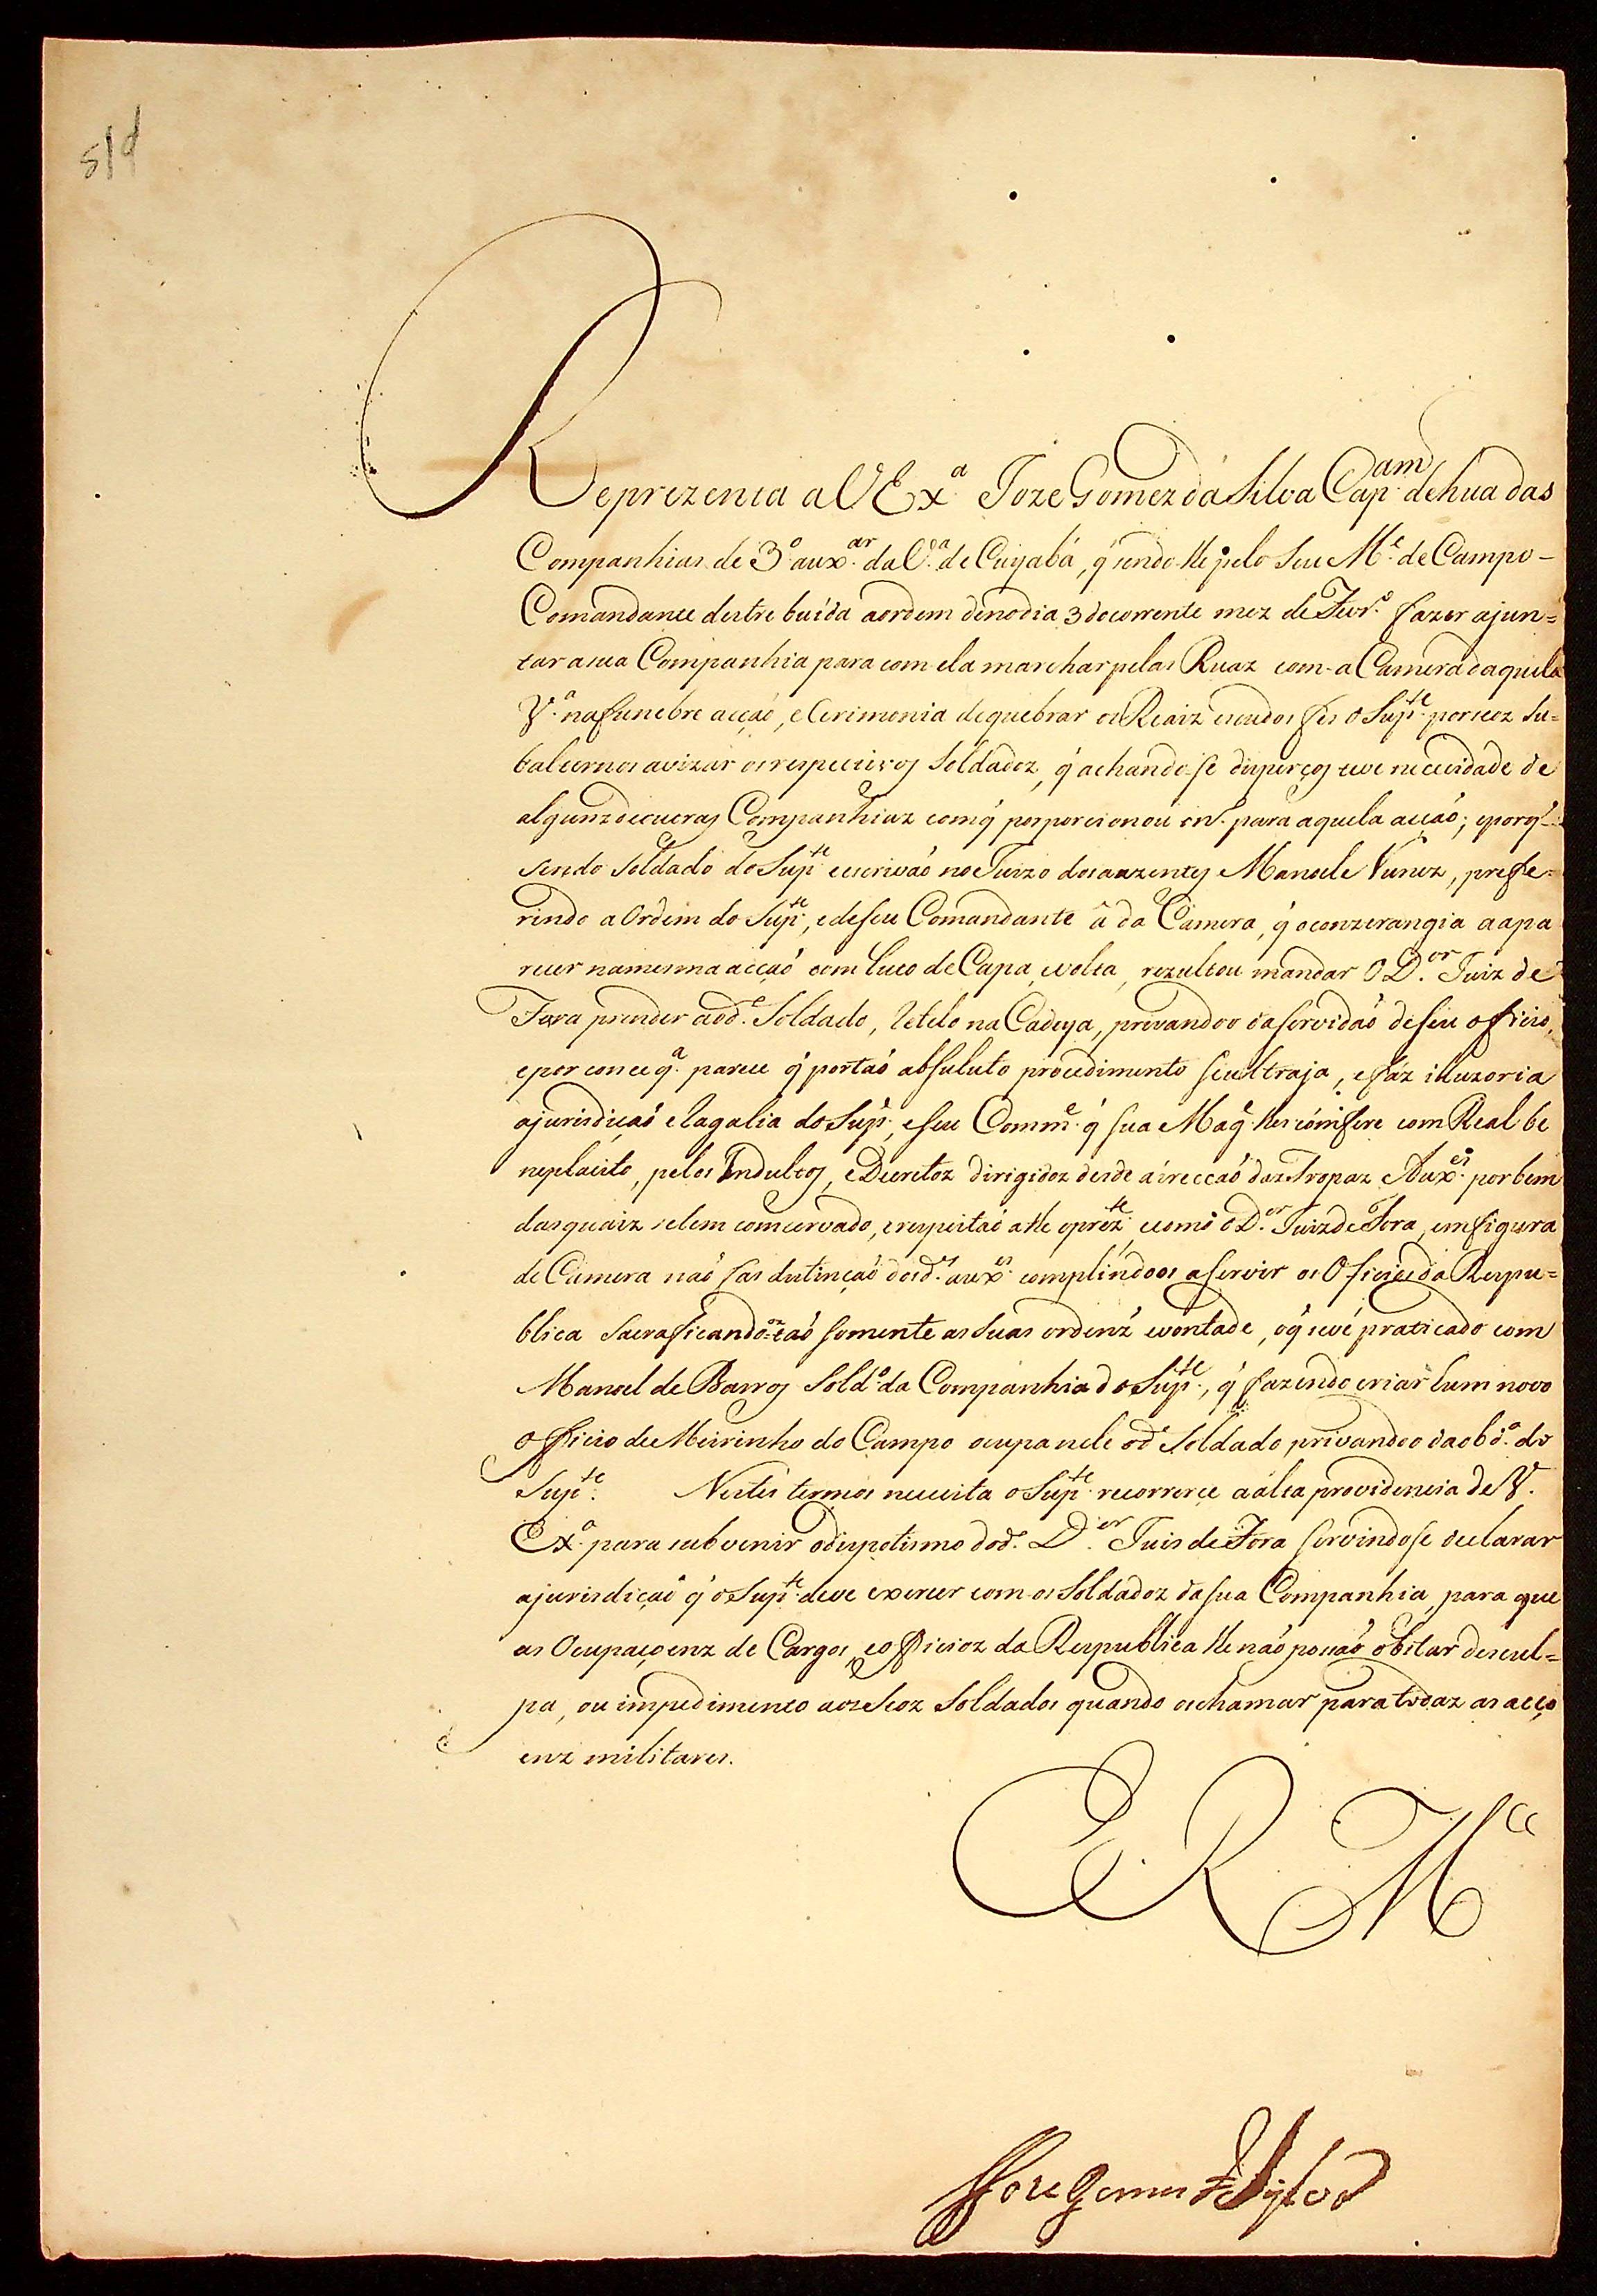 Reprezenta a V Ex.ª Joze Gomez da Silva Cap.am de hua das
Companhias de 3.º aux.ar da V.ª de Cuyabá, q̃ sendo-lhe pelo Seu M.e de Campo-
Comandante destrebuida aordem de no dia 3 do corrente mez de Fevr.º fazer ajun=
tar asua Companhia para com ela marchar pelas Ruaz com-a Camera daquela
V.ª na funebre acçaó, e Cerimonia de quebrar os Reaiz escudos fes o Sup.te por seoz Su=
balternos avizar os respectivos Soldadoz, q̃ achando-se disperços teve necesidade de
algunz de outras Companhiaz com q̃ porporcionou o n.º para aquela acçaó; eporq̃
sendo Soldado do Sup.te escrivaó no Juizo dos auzentes Manoel Nunez, prefe=
rindo a Ordem do Sup.te, e de seu Comandante á da Camera, q̃ o conzerangia a apa
recer na mesma acçaó com luto de Capa, evolta, rezultou mandar O D.or Juiz de
Fora prender aod.º Soldado, retelo na Cadeya, privandoo da servidaó de seu officio,
e por conceq.ª parece q̃ por taó absuluto procedimento se ultraja, efáz iluzoria
ajurisdiçaó e Ragalia do Sup.e, eseu Comm.e q̃ sua Mag.e lhes comfere com Real be
neplacito, pelos Indultos, e Decretoz dirigidoz desde a irecçaó daz Tropaz Aux.es por bem
dasquaiz se lem comcervado, erespeitaó athe oprez.te, ecomo o D.or Juiz de Fora, em figura
de Camera naó fas distinçaó dosd.os aux.es complindoos aservir os Oficios da Respu=
blica Sacraficandooz taó somente as Suas ordenz evontade, oq̃ sevé praticado com
Manoel de Barros Sold.º da Companhia do Sup.te, q̃ fazendo criar hum novo
officio de Meirinho do Campo ocupa nele od.º Soldado, privandoo daob.ª do
Sup.te. Nestes termos necesita o Sup.te recorrerce a alta providencia de V.
Ex.ª para subvenir odespotismo dod.º D.or Juis de Fora servindose declarar
ajurisdiçaó q̃ o Sup.te deve exercer com os Soldadoz da sua Companhia, para que
as Ocupaçoenz de Cargos, eofficioz da Respublica lhe naó posaó obstar descul=
pa, ou impedimento aos Seoz Soldados quando os chamar para todaz as acço
enz militares.
E R M.ce
Joze Gomes da Sylva